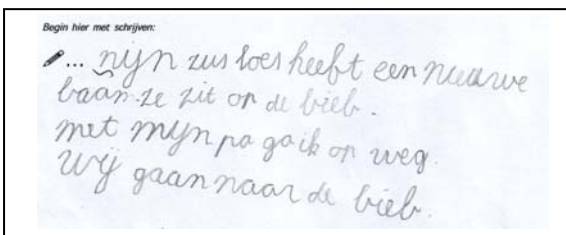 Begin hier met schrijven:
... mijn zus loes heeft een nieuwe
baan. ze zit op de bieb.
met mijn pa ga ik op weg.
wij gaan naar de bieb.